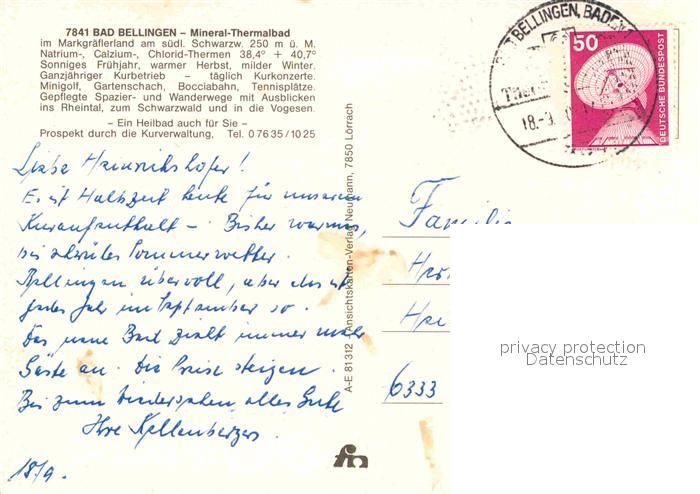 7841 BAD BELLINGEN – Mineral-Thermalbad
im Markgräflerland am südl. Schwarzw. 250 m ü. M.
Natrium-, Calzium-, Chlorid-Thermen 38,4° + 40,7°
Sonniges Frühjahr, warmer Herbst, milder Winter.
Ganzjähriger Kurbetrieb – täglich Kurkonzerte.
Minigolf, Gartenschach, Bocciabahn, Tennisplätze.
Gepflegte Spazier- und Wanderwege mit Ausblicken
ins Rheintal, zum Schwarzwald und in die Vogesen.
– Ein Heilbad auch für Sie –
Prospekt durch die Kurverwaltung, Tel. 0 76 35 / 10 25
Liebe Heinrichshofer!
Es ist Halbzeit heute für unseren
Kuraufenthalt – Bisher warmes,
bei schwüles Sommerwetter.
Bellingen übervoll, aber das ist
jedes Jahr im September so.
Das neue Bad zieht immer mehr
Gäste an. Die Preise steigen.
Bis zum Wiedersehen alles Gute
Ihre Kellenbergers
18/9.
A-E 81312 Ansichtskarten-Verlag Neumann, 7850 Lörrach
BAD BELLINGEN, BADEN
18.-9.
50
DEUTSCHE BUNDESPOST
Familie
6333
privacy protection
Datenschutz
fm